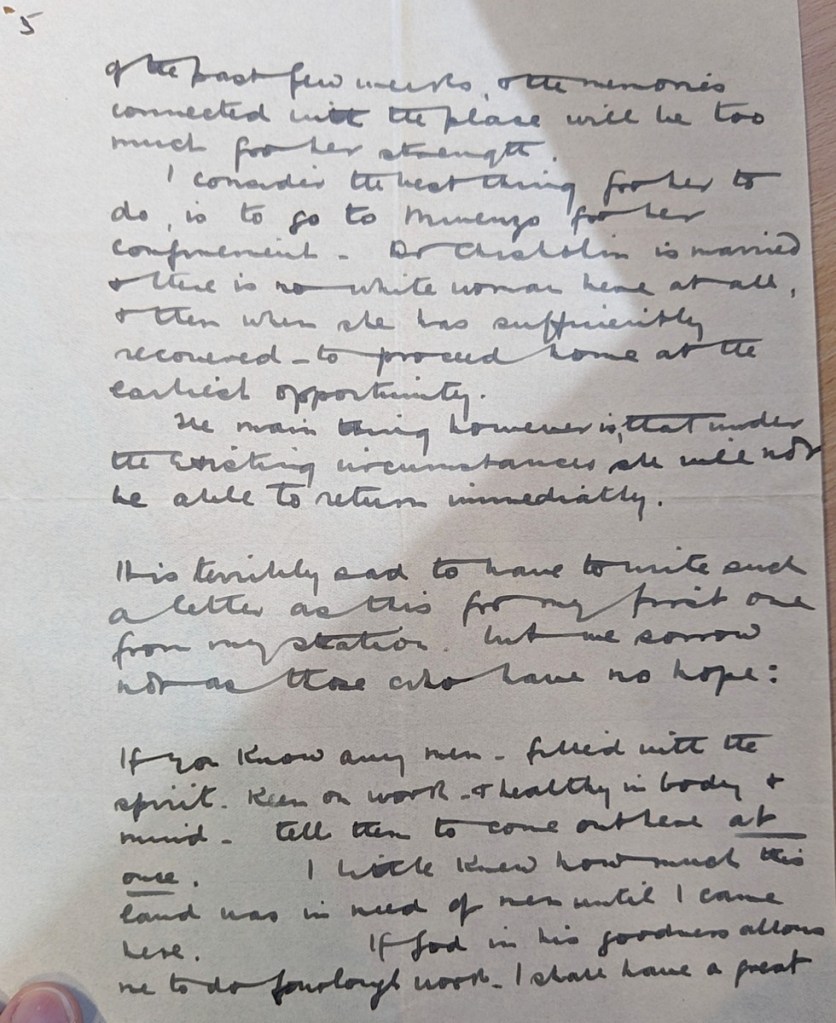 5
of the past few weeks, & the memories
connected with the place will be too
much for her strength.
I consider the best thing for her to
do, is to go to Mwenzo for her
confinement - Dr Chisholm is married
& there is no white woman here at all,
& then when she has sufficiently
recovered - to proceed home at the
earliest opportunity.
The main thing however is, that under
the existing circumstances she will not
be able to return immediatly.
It is terribly sad to have to write such
a letter as this for my first one
from my station. but we sorrow
not as those who have no hope:
If you know any men - filled with the
spirit. Keen on work - & healthy in body &
mind - tell them to come out here at
once. I little knew how much this
land was in need of men until I came
here. If God in his goodness allows
me to do fourlough work - I shall have a great